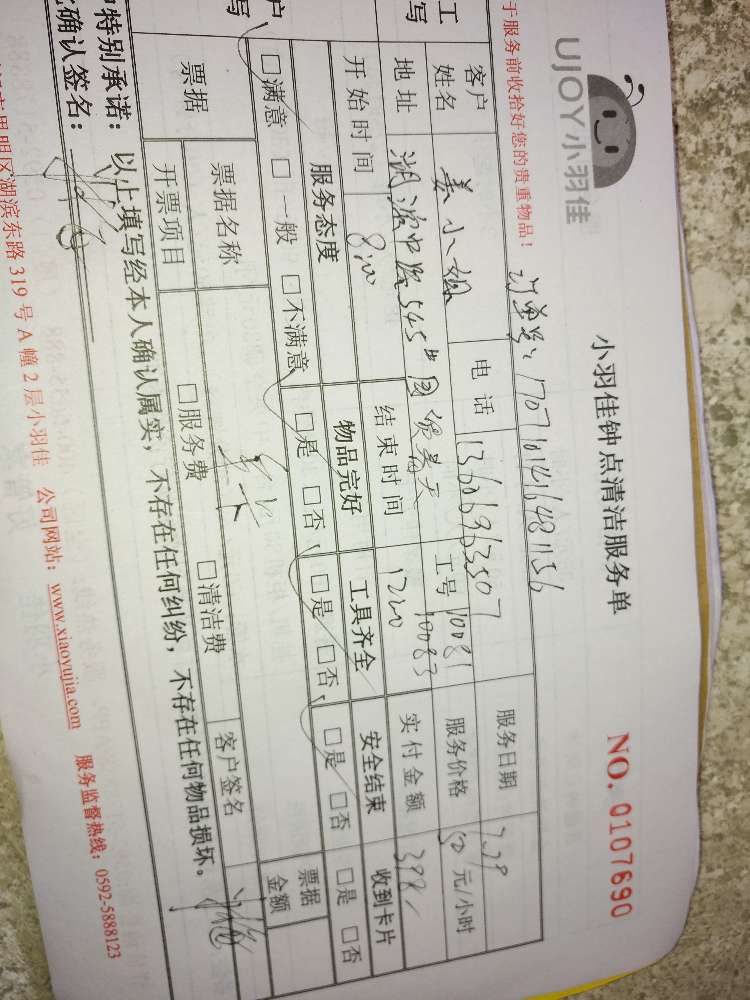 UJOY小羽佳
小羽佳钟点清洁服务单
NO. 0107690
于服务前收拾好您的贵重物品！
订单号：170710416481156
客户姓名 姜小姐 电话 13606963507 服务日期 7.29
地址 湖滨中路545号 工号 10081 10083 服务价格 50元/小时
开始时间 8:00 结束时间 1200 实付金额 398
服务态度 物品完好 工具齐全 安全结束 收到卡片
□满意 □一般 □不满意 □是 □否 □是 □否 □是 □否 □是 □否
票据 票据名称 客户签名 票据金额
开票项目 □服务费 □清洁费
户特别承诺：以上填写经本人确认属实，不存在任何纠纷，不存在任何物品损坏。
确认签名：
思明区湖滨东路319号A幢2层小羽佳 公司网站：www.xiaoyujia.com 服务监督热线：0592-5888123